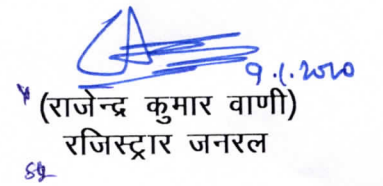 9.1.2020
(राजेन्द्र कुमार वाणी)
रजिस्ट्रार जनरल